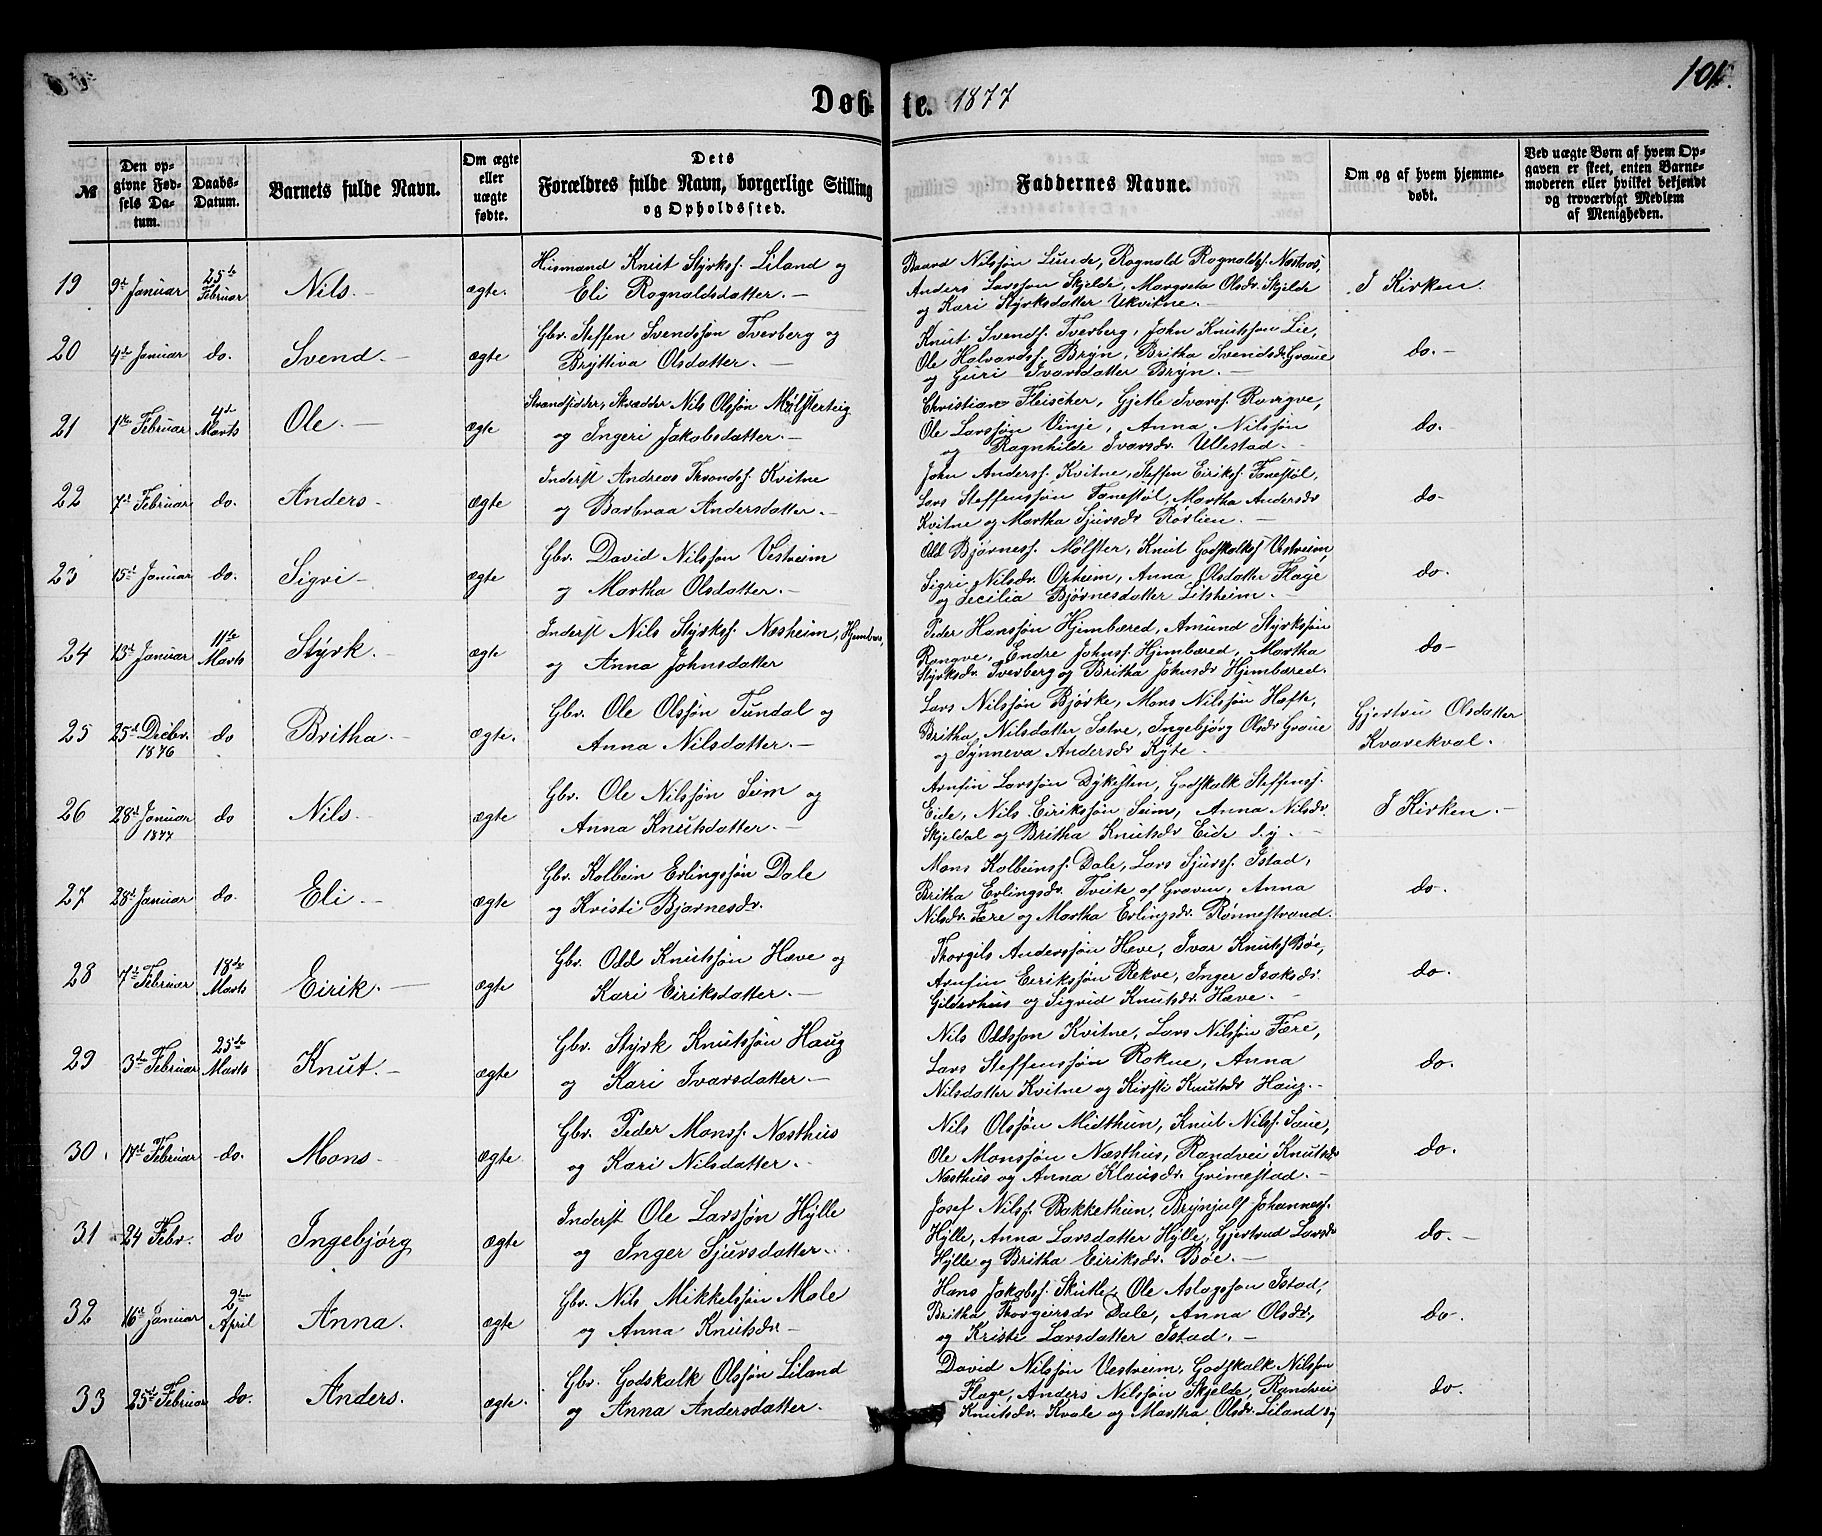 Døbte. 1877
101.
№
Den opgivne Fødsels Datum.
Daabs-Datum.
Barnets fulde Navn.
Om ægte eller uægte fødte.
Dets Forældres fulde Navn, borgerlige Stilling og Opholdssted.
Faddernes Navne.
Om og af hvem hjemmedøbt.
Ved uægte Børn af hvem Opgaven er skeet, enten Barnemoderen eller hvilket bekjendt og troværdigt Medlem af Menigheden.
19 9de Januar 25de Februar Nils.— ægte.
Husmand Knut Styrksf. Liland og
Eli Rognaldsdatter.—
Baard Nilssøn Lunde, Rognald Rognaldsf. Nestaas,
Anders Larssøn Skjelde, Margreta Olsdr. Skjelde
og Kari Styrksdatter Ukvitne.—
I Kirken.
20 4de Januar do. Svend.— ægte
Gbr. Steffen Svendssøn Tverberg og
Bryttiva Olsdatter.—
Knut Svendsf. Tverberg, John Knutssøn Lie,
Ole Halvardsf. Bryn, Britha Svendsdr Graue
og Guri Ivarsdatter Bryn.—
do.—
21 1ste Februar 4de Marts Ole.— ægte
Strandsidder, Skrædder Nils Olssøn Mølsterteig
og Ingeri Jakobsdatter.—
Christian Fleischer, Gjetle Ivarsf. Rongve,
Ole Larssøn Vinje, Anna Nilssøn
og Ragnhilde Ivarsdr. Ullestad.—
do.
22 7de Februar do. Anders.— ægte
Inderst Andreas Throndsf. Kvitne
og Barbraa Andersdatter.—
John Andersf. Kvitne, Steffen Eiriksf. Fenestøl,
Lars Steffenssøn Fenestøl, Martha Andersdr
Kvitne og Martha Sjursdr Rørlien.—
do-
23 15de Januar do. Sigri— ægte
Gbr. David Nilssøn Vestreim
og Martha Olsdatter.—
Odd Bjørnesf. Mølster, Knut Godskalksf Vestreim
Sigri Nilsdr. Opheim, Anna Olsdatter Flage
og Secilia Bjørnesdatter Litsheim.—
do.
24 13de Januar 11te Marts Styrk.— ægte
Inderst Nils Styrksf. Næsheim, Hjembæred,
og Anna Johnsdatter
Peder Hanssøn Hjembæred, Amund Styrkssøn
Rongve, Endre Johnsf. Hjembæred, Martha
Styrksdr. Tverberg og Britha Johnsdr Hjembæred.
do—
25 25de Decbr. 1876 do Britha.— ægte.
Gbr. Ole Olssøn Tundal og
Anna Nilsdatter.—
Lars Nilssøn Bjørke, Mons Nilssøn Hæfte,
Britha Nilsdatter Sætre, Ingebjørg Olsdr Graue
og Synneva Andersdr Kyte.—
Gjertru Olsdatter
Kvarekval.
26 28de Januar 1877 do Nils.— ægte
Gbr. Ole Nilssøn Seim og
Anna Knutsdatter.—
Arnfin Larssøn Dykesten, Godskalk Steffensf.
Eide, Nils Eirikssøn Seim, Anna Nilsdr.
Skjeldal og Britha Knutsdr Eide
I Kirken.—
27 28de Januar do. Eli.— ægte
Gbr. Kolbein Erlingssøn Dale
og Kristi Bjarnesdr.
Mons Kolbeinsf. Dale, Lars Sjursf. Istad,
Britha Erlingsdr. Tveite af Graven, Anna
Nilsdr. Fære og Martha Erlingsdr. Rønnestrand.
do.
28 7de Februar 18de Marts Eirik.— ægte
Gbr. Odd Knutssøn Hæve og
Kari Eiriksdatter.—
Thorgils Anderssøn Hæve, Ivar Knutsf Bøe,
Arnfin Eirikssøn Rekve, Inger Isaksdr
Gilderhus og Sigrid Knutsdr. Hæve.—
do.
29 3de Februar 25de Marts Knut.— ægte
Gbr. Styrk Knutssøn Haug
og Kari Ivarsdatter.—
Nils Oddssøn Kvitne, Lars Nilssøn Fære,
Lars Steffenssøn Rokne, Anna
Nilsdatter Kvitne og Kirsti Knutsdr Haug.—
do.
30. 17de Februar do. Mons— ægte
Gbr. Peder Monsf. Næsthus
og Kari Nilsdatter.
Nils Olssøn Midthun, Knut Nilsf. Saue,
Ole Monssøn Næsthus, Randvei Knutsdr
Næsthus og Anna Klausdr. Grimestad.—
do.
31 24 Febr. do Ingebjørg ægte
Inderst Ole Larssøn Hylle
og Inger Sjursdatter.
Josef Nilsf. Bakkethun, Brynjulf Johannesf.
Hylle, Anna Larsdatter Hylle, Gjertrud Larsdr
Hylle og Britha Eiriksdr. Bøe.—
do.—
32 16de Januar 2den April Anna. ægte
Gbr. Nils Mikkelssøn Male
og Anna Knutsdr—
Hans Jakobsf. Skutle, Ole Aslagssøn Istad,
Britha Thorgersdr Dale, Anna Olsdr,
og Kristi Larsdatter Istad.—
do.
33 25de Februar do. Anders. ægte.
Gbr. Godskalk Olssøn Liland
og Anna Andersdatter.
David Nilssøn Vestreim, Godskalk Nilssøn
Flage, Anders Nilssøn Skjelde, Randvei
Knutsdr. Kvale og Martha Olsdr. Liland
do.